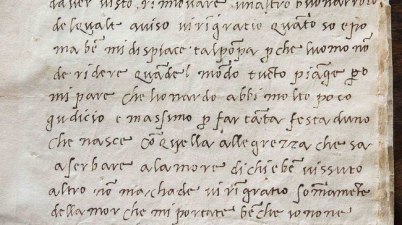 da ver visto rinovare un altro buonarroto
del quale aviso vi ringratio quanto so e po
ma bē mi dispiace tal pompa p che luomo nō
de ridere quāde l mōdo tucto piāge po
mi pare che lionardo abbi molto poco
gudicio e massimo p far tāta festa duno
che nasce Cō quella allegrezza che s a
a serbare a la morte di chi è bē vissuto
altro nō m achade vi ringratio sommamēte
della mor che mi portate bē che io nō ne